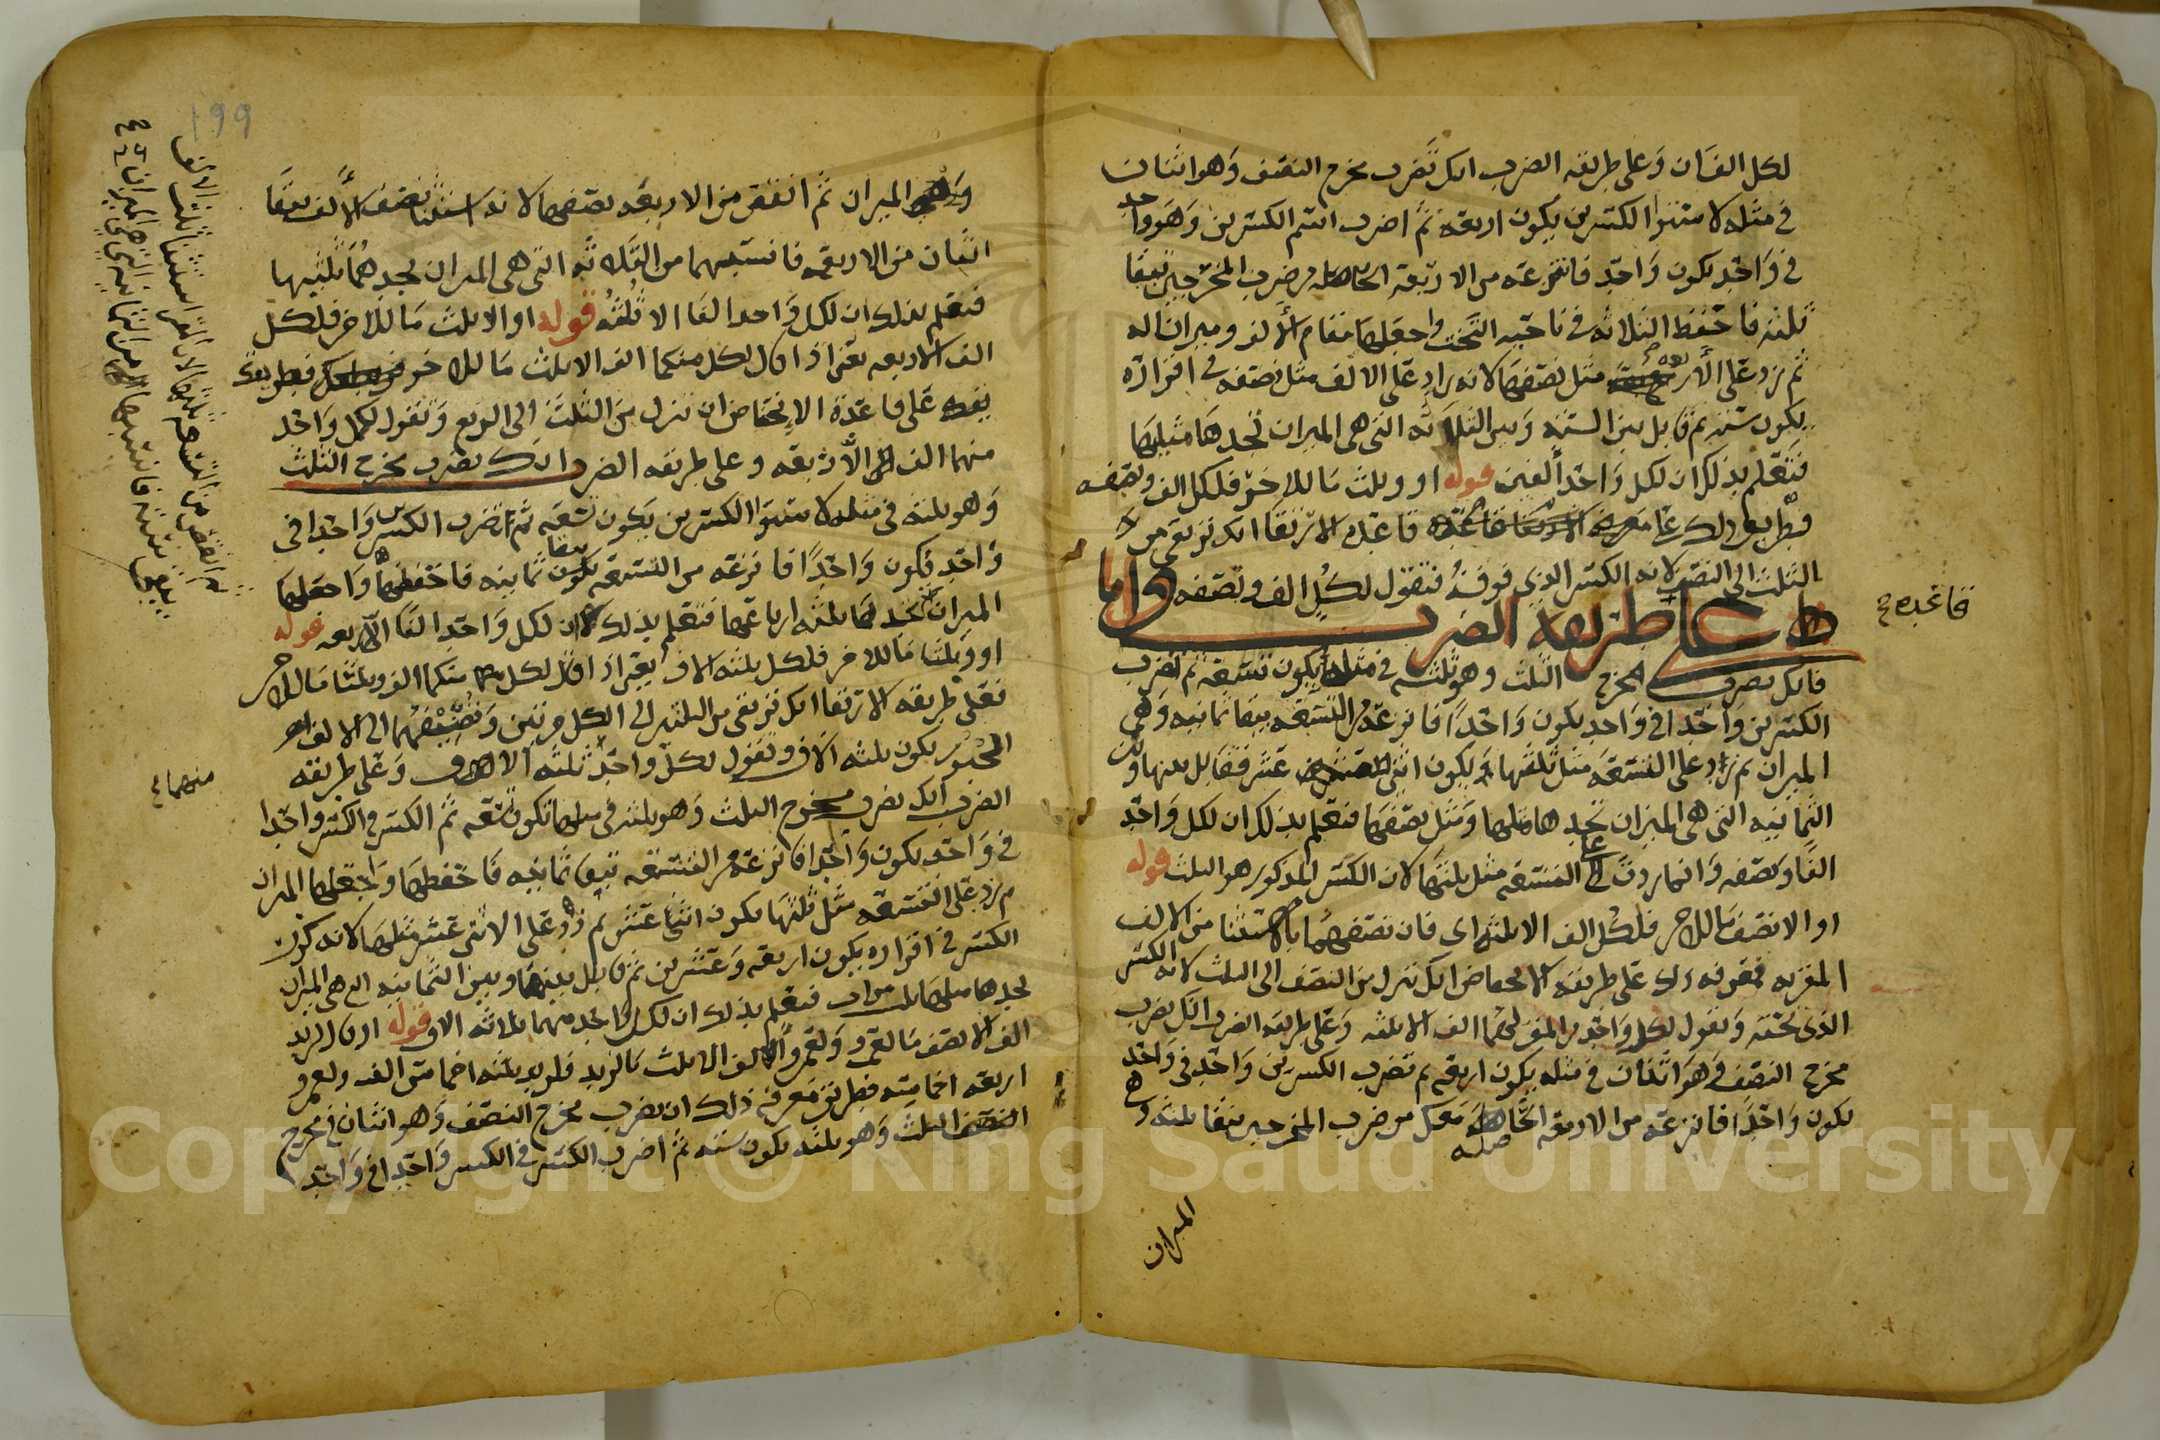 لكل الفان وعلى طريقه الضرب انك تضرب مخرج النصف وهو اثنان
في مثله لاستوا الكسرين يكون اربعه ثم اضرب اسم الكسرين وهو واحد
في واحد يكون واحد فانزعه من الاربعة الحاصله من ضرب المخرجين تبقا
ثلثه فاحفظ الثلاثه في ناحيه التخت واجعلها مقام الألف وميزانا له
ثم زد على الأربعه مثل نصفها لانه زاد على الالف مثل نصفه في اقراره
يكون سته ثم قابل بين السته وبين الثلاثه التي هي الميزان تجدها مثليها
فتعلم بذلك ان لكل واحد ألفين قوله او وثلث ما للاخر فلكل الف ونصفه
وطريق ذلك على قاعدة الارتقا انك ترتقي من
الثلث الى النصف لانه الكسر الذي فوقه فتقول لكل الف ونصفه واما
على طريقه الضرب
قاعده
فانك تضرب مخرج الثلث وهو ثلثه في مثله يكون تسعه ثم تضرب
الكسرين واحد في واحد يكون واحدا فانزعه من التسعه يبقا ثمانيه وهي
الميزان ثم زد على التسعه مثل ثلثها يكون اثني عشر فقابل بينها وبين
الثمانيه التي هي الميزان تجدها مثلها ومثل نصفها فتعلم بذلك ان لكل واحد
الفا ونصفه وانما زدت على التسعه مثل ثلثها لان الكسر المذكور هو الثلث قوله
او الا نصف ما للاخر فلكل الف الا ثلثه اي فان نصفهما بالاستثنا من الالف
المقر به فمعرفه ذلك على طريقه الانخفاض انك تنزل من النصف الى الثلث لانه الكسر
الذي تحته وتقول لكل واحد من المقر لهما الف الا ثلثه وعلى طريقه الضرب انك تضرب
مخرج النصف وهو اثنان في مثله يكون اربعه ثم تضرب الكسرين واحد في واحد
يكون واحدا فانزعه من الاربعه الحاصله معك من ضرب المخرجين يبقا ثلثه وهي
الميزان
199
وهي الميزان ثم انقص من الاربعه نصفها لانه استثنا نصف الألف يبقا
اثنان من الاربعه فانسبهما من الثلاثه التي هي الميزان تجدهما ثلثيها
فتعلم بذلك ان لكل واحد الفا الا ثلثه قوله او الا ثلث ما للاخر فلكل
الف الا ربعه يعني اذا قال لكل منكما الف الا ثلث ما للاخر فطريق
على قاعدة الانخفاض ان تنزل من الثلث الى الربع وتقول لكل واحد
منهما الف الا ربعه وعلى طريقه الضرب انك تضرب مخرج الثلث
وهو ثلثه في مثله لاستوا الكسرين يكون تسعه ثم اضرب الكسرين واحدا في
واحد يكون واحدا فانزعه من التسعه يبقا ثمانيه فاحفظها واجعلها
الميزان تجدها ثلثه ارباعها فتعلم بذلك ان لكل واحد الفا الا ربعه قوله
او وثلثا ما للاخر فلكل ثلثه الاف يعني اذا قال لكل منكما الف وثلثا ما للاخر
فعلى طريقه الارتقا انك ترتقي من الثلثين الى الكل مرتين وتضيفهما الى الالف
يكون ثلثه الاف وتقول لكل واحد ثلثه الاف وعلى طريقه
منهما
الضرب انك تضرب مخرج الثلث وهو ثلثه في مثلها تكون تسعه ثم الكسر في الكسر واحدا
في واحد يكون واحدا فانزعه من التسعه تبقى ثمانيه فاحفظها واجعلها الميزان
ثم زد على التسعه مثل ثلثها يكون اثنا عشر ثم زد على الاثني عشر مثلها لانه كرر
الكسر في اقراره يكون اربعه وعشرين ثم قابل بينها وبين الثمانيه التي هي الميزان
تجدها مثلها ثلث مرات فتعلم بذلك ان لكل واحد منهما ثلاثه الاف قوله او قال لزيد
الف الا نصف ما لعمرو ولعمرو الف الا ثلث ما لزيد فلزيد ثلثه اخماس الف ولعمرو
اربعه اخماسه فطريق معرفه ذلك ان تضرب مخرج النصف وهو اثنان في مخرج
الثلث وهو ثلثه يكون سته ثم اضرب الكسر في الكسر واحدا في واحد
ثم انقص من التسعه ثلثها لانه استثنا ثلث الالف
يبقى سته فانسبها من الثمانيه التي هي الميزان